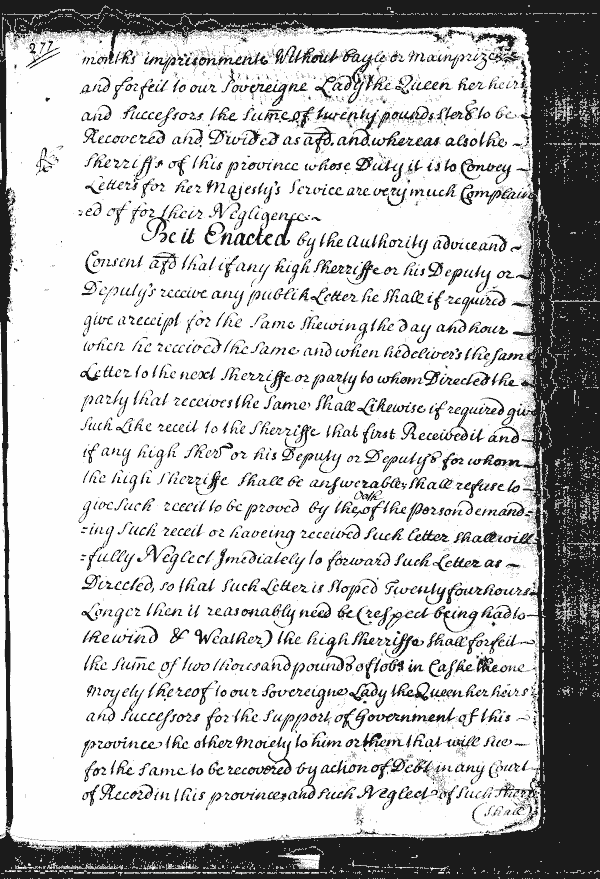 277
months imprisonment Without bayle or mainprize
and forfeit to our Sovereigne Lady the Queen her heirs
and Successors the Sume of twenty pounds Sterl to be
Recovered and Divided as afd. and whereas also the
Sherriffs of this province whose Duty it is to Convey
Letters for her Majesty's Service are very much Complain
ed of for their Negligence
Be it Enacted by the Authority advice and
Consent afd that if any high Sherriffe or his Deputy or
Deputy's receive any publik Letter he Shall if required
give a receipt for the Same Shewing the day and hour
when he received the Same and when he deliver's the Same
Letter to the next Sherriffe or party to whom Directed the
party that receives the Same Shall Likewise if required give
Such Like receit to the Sherriffe that first Received it and
if any high Sherr or his Deputy or Deputys for whom
the high Sherriffe Shall be answerable shall refuse to
give Such receit to be proved by the Oath of the person demand=
=ing Such receit or haveing received Such Letter Shall will
=fully Neglect Imediately to forward Such Letter as
Directed, so that Such Letter is Stoped Twenty four hours
Longer then it reasonably need be (respect being had to
the wind & Weather) the high Sherriffe Shall forfeit
the Sume of two thousand pounds of tobo in Caske the one
Moyety thereof to our Sovereigne Lady the Queen her heirs
and Successors for the Support of Government of this
province the other Moiety to him or them that will sue
for the Same to be recovered by action of Debt in any Court
of Record in this province and Such Neglect of Such
(Shall)